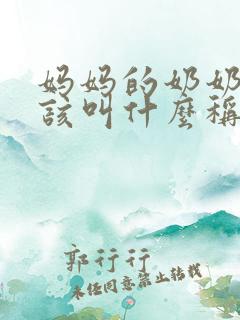 妈妈的奶奶
该叫什麼稱
郭行行
未经同意禁止转载